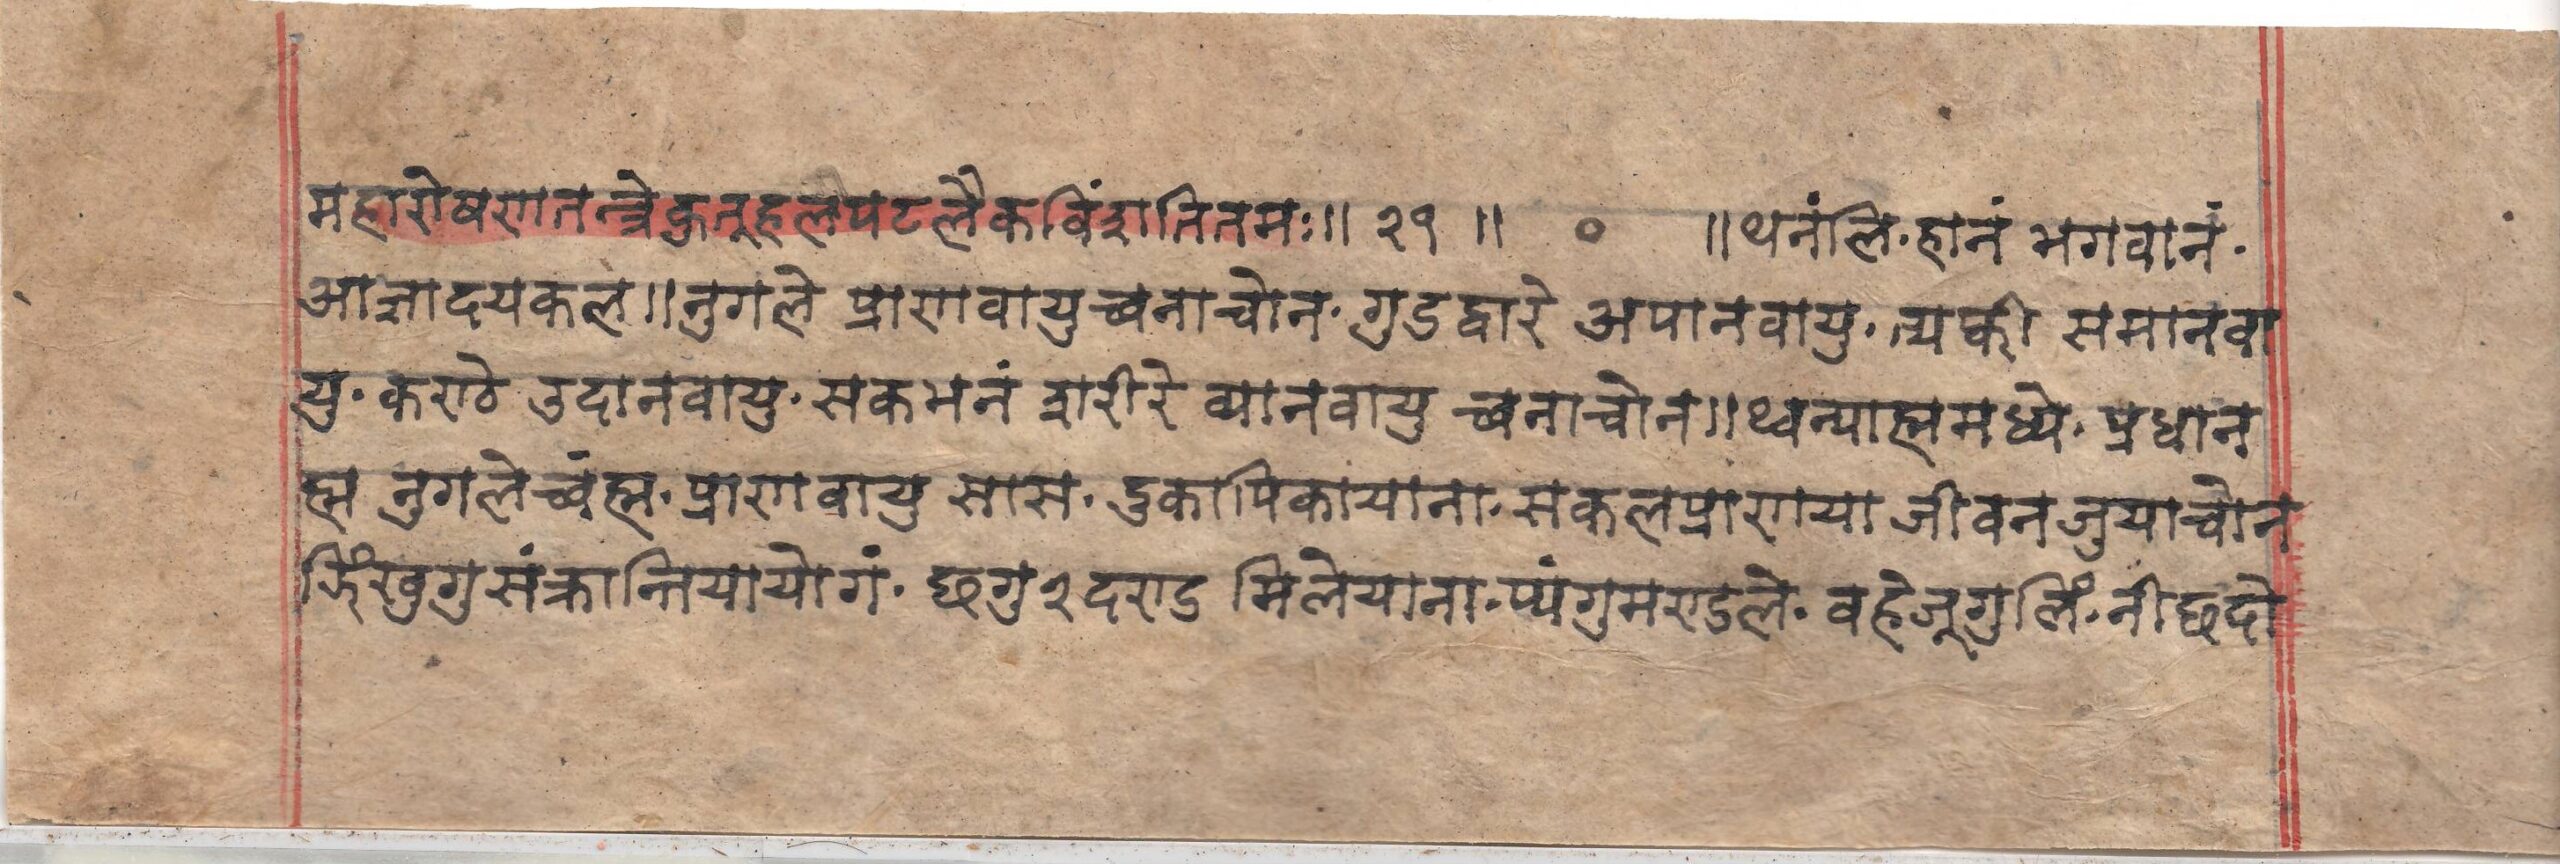 महारोषणतन्त्रेकुतूहलपटलैकविंशतितमः॥ २१ ॥ ० ॥थनंलि·हानं भगवानं·
आज्ञादयकल॥नुगले प्राणवायुच्वनाचोन·गुडद्वारे अपानवायु· समानवा
यु·कण्ठे उदानवायु·सकभनं शरीरे व्यानवायु च्वनाचोन॥थ्वन्याह्ममध्ये·प्रधान
ह्म नुगलेच्वंह्म·प्राणवायु सास·दुकापिकायाना·सकलप्राणया जीवनजुयाच्चोन
झिंखुगुसंक्रान्तियायोगं·छगु२दण्ड मिलेयाना·प्यंगुमण्डले·वहेजूगुलिं·नीछदो